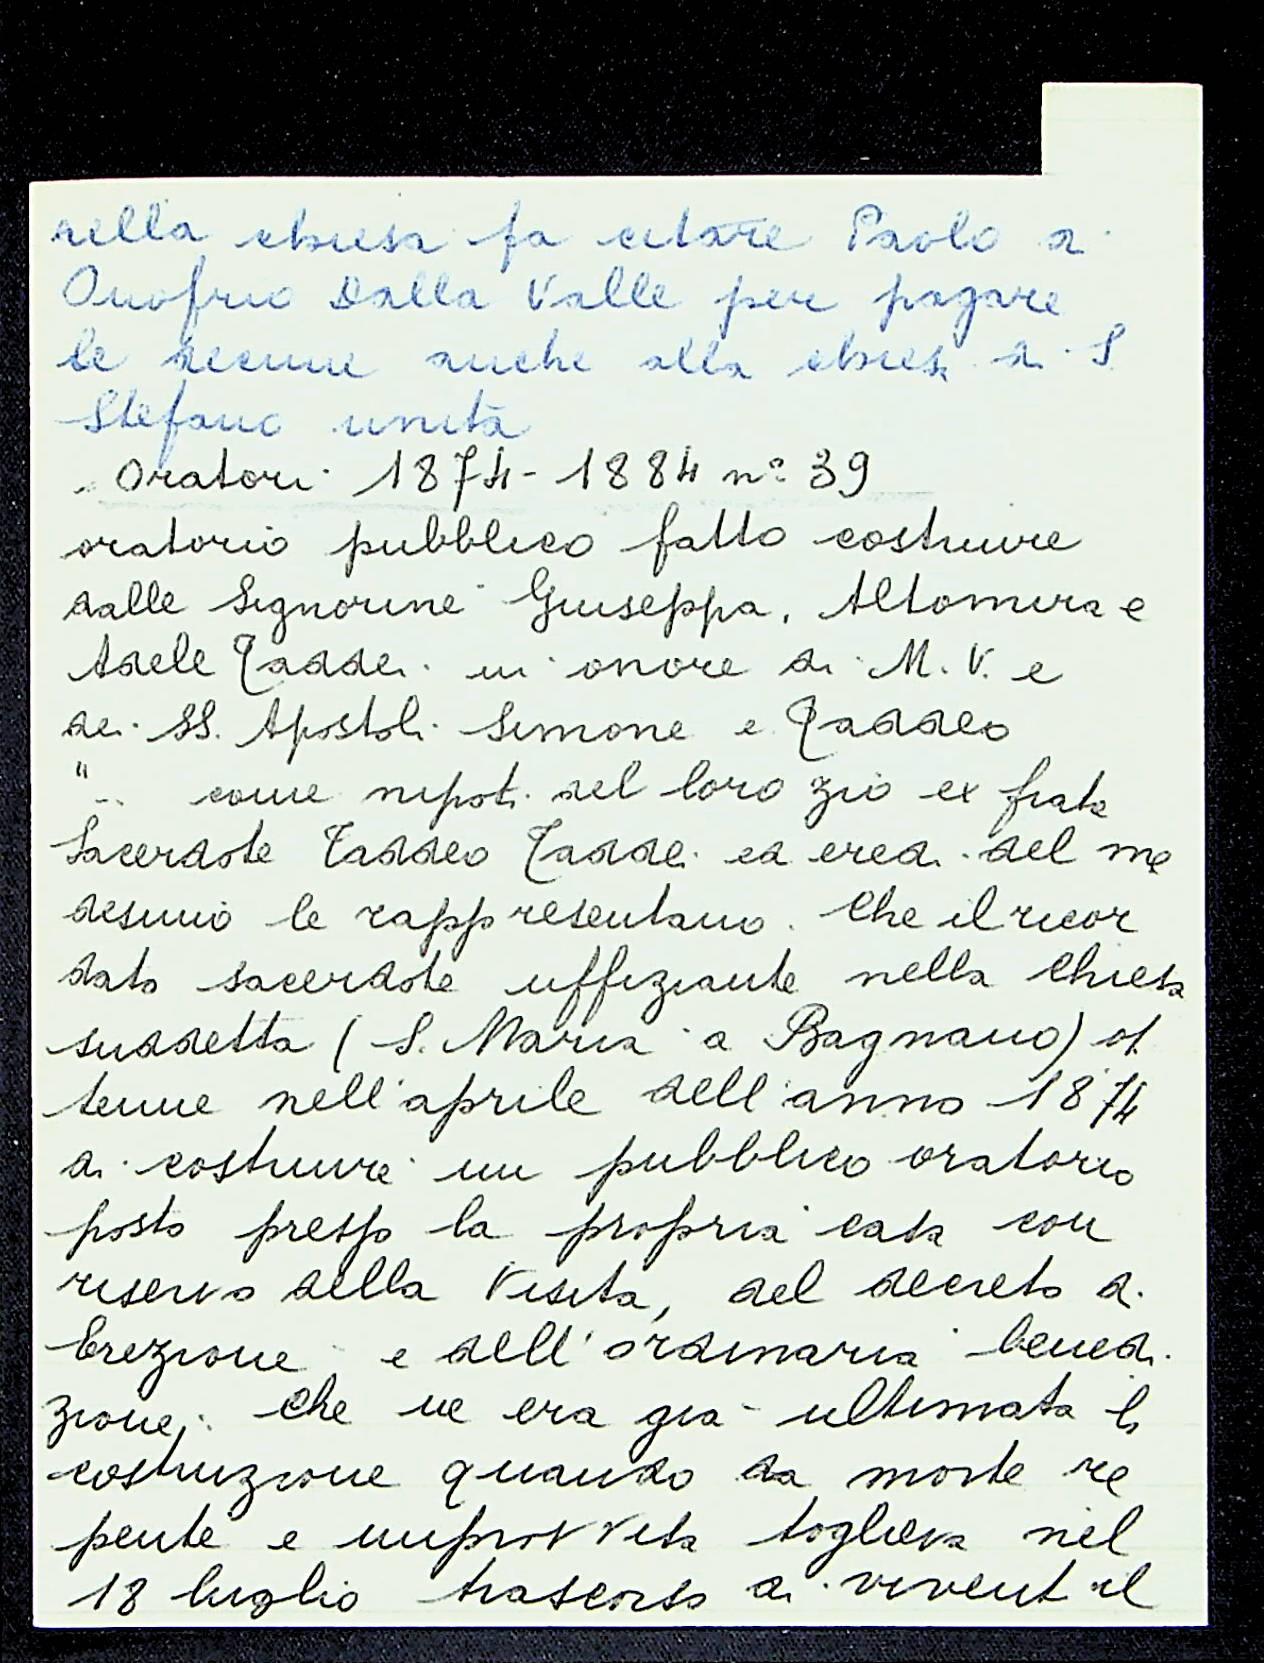 nella chiesa fa citare Paolo di
Onofrio Dalla Valle per pagare
le decime anche alla chiesa di S.
Stefano unita
Oratori 1874-1884 n° 39
oratorio pubblico fatto costruire
dalle Signorine Giuseppa, Altomira e
Adele Taddei in onore di M. V. e
dei SS. Apostoli Simone e Taddeo
" .. come nipoti del loro zio ex frate
Sacerdote Taddeo Taddei ed eredi del me
desimo le rappresentano. Che il ricor
dato sacerdote uffiziante nella Chiesa
suddetta (S. Maria a Bagnano) ot
tenne nell'aprile dell'anno 1874
di costruire un pubblico oratorio
posto presso la propria casa con
riserva della Visita, del decreto di
Erezione e dell'ordinaria benedi
zione; che ne era già ultimata la
costruzione quando da morte re
pente e improvvisa toglieva nel
18 luglio trascorso ai viventi il